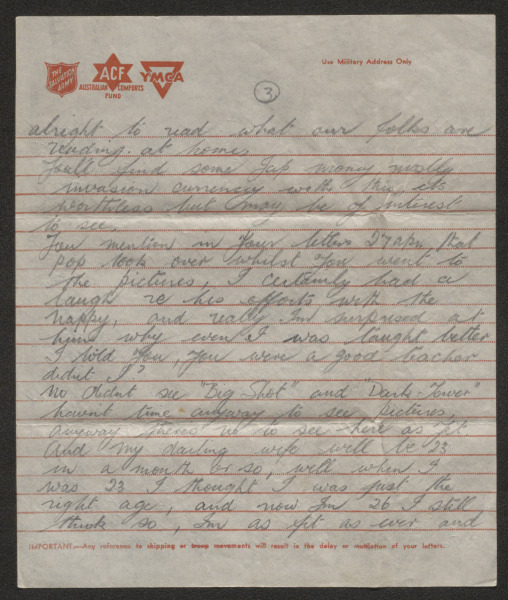 THE SALVATION ARMY
ACF
AUSTRALIAN COMFORTS FUND
YMCA
Use Military Address Only
3
alright to read what our folks are
reading at home.
You'll find some Jap money mostly
invasion currency with this, its
worthless but may be of interest
to see.
You mention in your letters 27 apr, that
pop took over whilst you went to
the pictures, I certainly had a
laugh re his efforts with the
nappy, and really Im surprised at
him why even I was taught better
I told you, you were a good teacher
didnt I?
No didnt see "Big Shot" and "Dark Tower"
havent time anyway to see pictures,
anyway theres no to see here as yet.
And my darling wife will be 23
in a month or so, well when I
was 23 I thought I was just the
right age, and now Im 26 I still
think so, Im as fit as ever and
IMPORTANT.—Any reference to shipping or troop movements will result in the delay or mutilation of your letters.